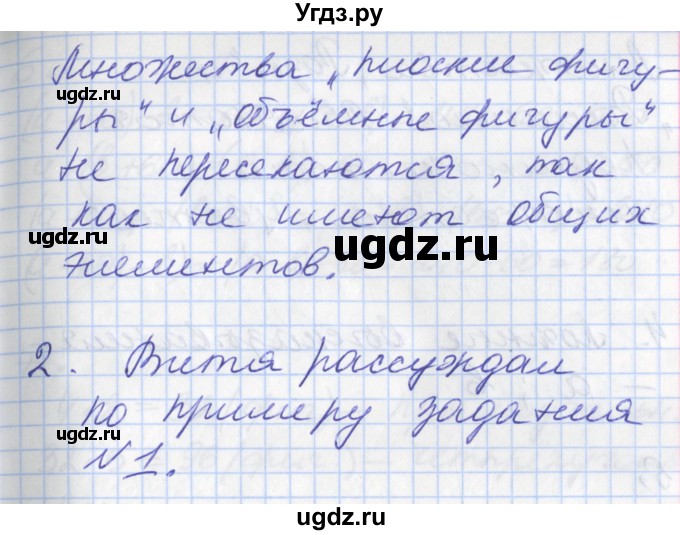 Угдз.ру
Множества „плоские фигу-
ры“ и „объёмные фигуры“
не пересекаются, так
как не имеют общих
элементов.
2. Витя рассуждал
по примеру задания
№1.
ugdz.ru
ugdz.ru
ugdz.ru
ugdz.ru
ugdz.ru
ugdz.ru
ugdz.ru